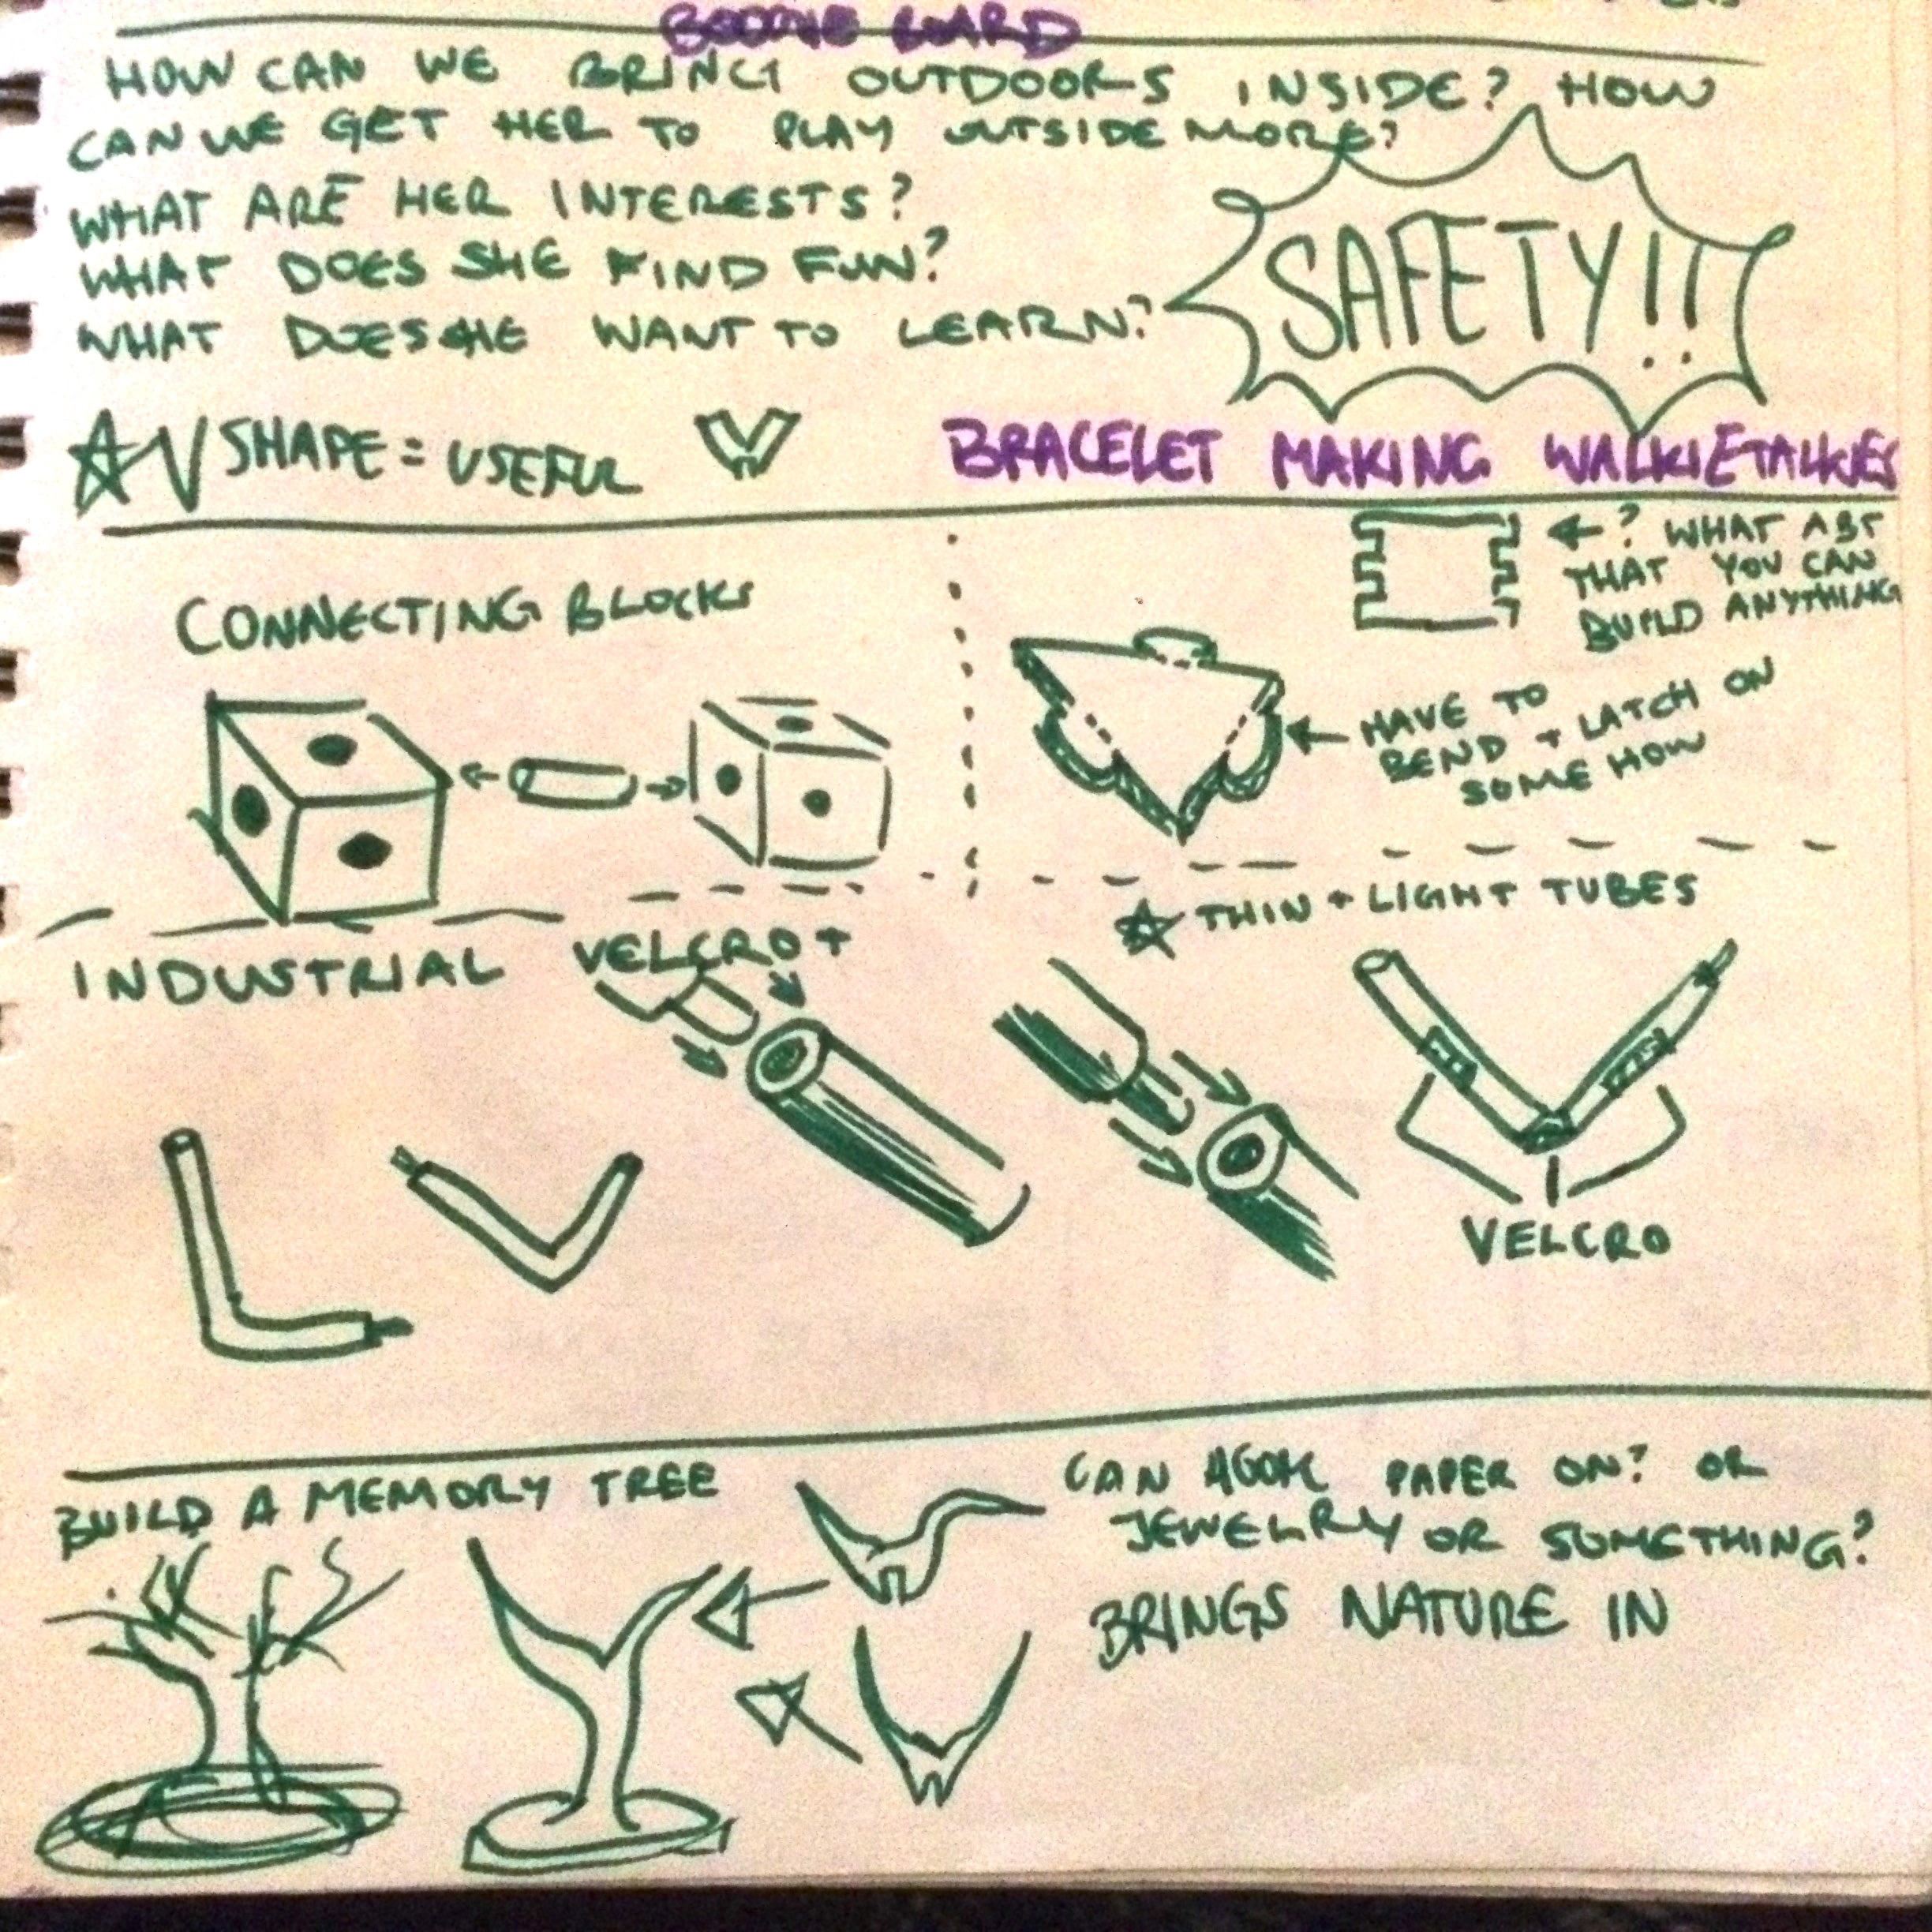 BOOGIE BOARD
HOW CAN WE BRING OUTDOORS INSIDE? HOW
CAN WE GET HER TO PLAY OUTSIDE MORE?
WHAT ARE HER INTERESTS?
WHAT DOES SHE FIND FUN?
WHAT DOES SHE WANT TO LEARN?
SAFETY!!
V SHAPE = USEFUL
BRACELET MAKING WALKIETALKIES
CONNECTING BLOCKS
? WHAT ABT
THAT YOU CAN
BUILD ANYTHING
HAVE TO
BEND + LATCH ON
SOME HOW
INDUSTRIAL VELCRO +
THIN + LIGHT TUBES
VELCRO
BUILD A MEMORY TREE
CAN HOOK PAPER ON? OR
JEWELRY OR SOMETHING?
BRINGS NATURE IN